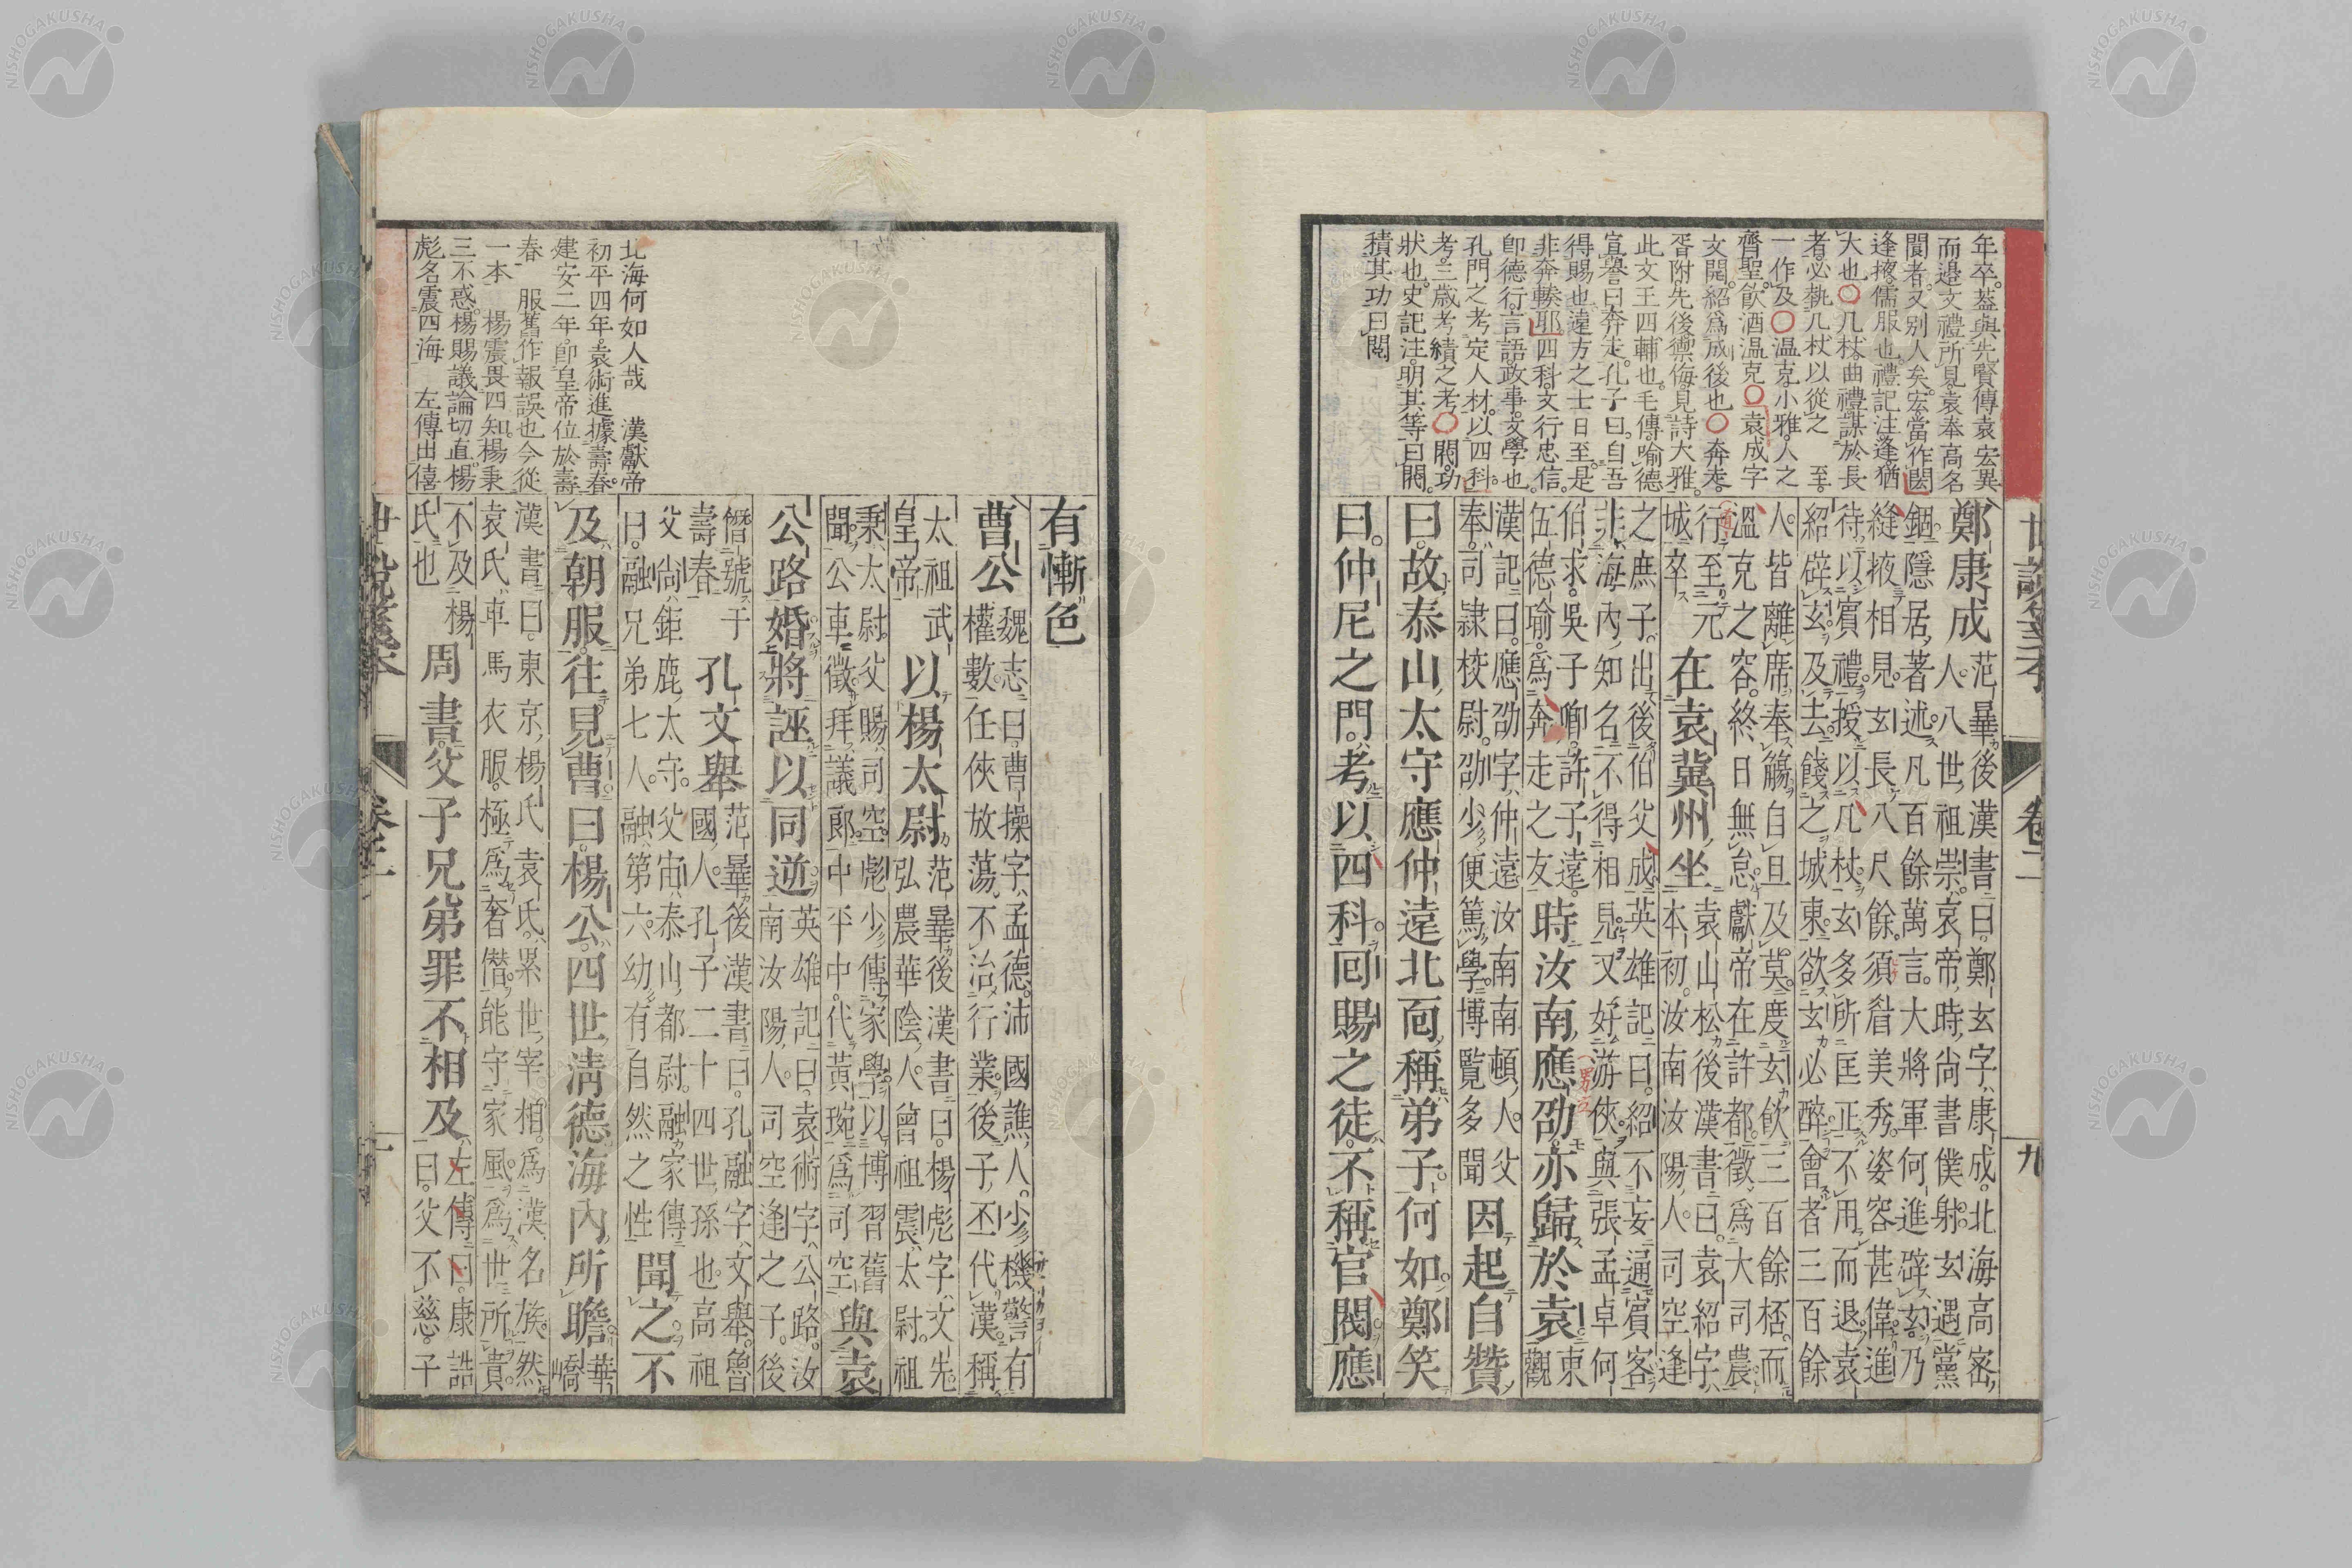 年卒葢與先賢傳袁宏異
而邉文禮所見袁奉高名
閬者又别人矣宏當作閎
逢掖儒服也禮記注逢猶
大也〇几杖曲禮謀於長
者必執几杖以從之　至
一作及〇温克小雅人之
齊聖飮酒温克〇袁成字
文開紹爲成後也〇奔走
胥附先後禦侮見詩大雅
此文王四輔也毛傳喻德
宣譽曰奔走孔子曰自吾
得賜也遠方之士日至是
非奔輳耶四科文行忠信
卽德行言語政事文學也
孔門之考定人材以四科
考三歳考績之考〇閥功
狀也史記注明其等曰閥
積其功曰閱
卷二
九
鄭康成
范曄後漢書曰鄭玄字康成北海高密
人八世祖崇哀帝時尚書僕射玄遇黨
錮隱居著述凡百餘萬言大將軍何進辟玄乃
縫掖相見玄長八尺餘須眉美秀姿容甚偉進
待以賓禮授以几杖玄多所匡正不用而退袁
紹辟玄及去餞之城東欲玄必醉會者三百餘
人皆離席奉觴自旦及莫度玄飲三百餘桮而
溫克之容終日無怠獻帝在許都徵爲大司農
行至元
城卒
在袁冀州坐
袁山松後漢書曰袁紹字
本初汝南汝陽人司空逢
之庶子出後伯父成英雄記曰紹不妄通賓客
非海內知名不得相見又好游俠與張孟卓何
伯求吳子卿許子遠
伍德瑜爲奔走之友
時汝南應劭亦歸於袁
東
觀
漢記曰應劭字仲遠汝南南頓人父
奉司隷校尉劭少便篤學博覽多聞
因起自贊
曰故泰山太守應仲遠北面稱弟子何如鄭笑
曰仲尼之門考以四科回賜之徒不稱官閥應
北海何如人哉　漢獻帝
初平四年袁術進據壽春
建安二年卽皇帝位於壽
春　服舊作報誤也今從
一本　楊震畏四知楊秉
三不惑楊賜議論切直楊
彪名震四海　左傳出僖
有慚色
曹公
魏志曰曹操字孟德沛國譙人少機警有
權數任俠放蕩不治行業後子丕代漢稱
太祖武
皇帝
以楊太尉
范曄後漢書曰楊彪字文先
弘農華陰人曾祖震太尉祖
秉太尉父賜司空彪少傳家學以博習舊
聞公車徵拜議郎中平中代黃琬爲司空
與袁
公路婚將誣以同逆
英雄記曰袁術字公路汝
南汝陽人司空逢之子後
僭號于
壽春
孔文舉
范曄後漢書曰孔融字文舉魯
國人孔子二十四世孫也高祖
父尚鉅鹿太守父宙泰山都尉融家傳
曰融兄弟七人融第六幼有自然之性
聞之不
及朝服往見曹曰楊公四世淸德海內所瞻
華
嶠
漢書曰東京楊氏袁氏累世宰相爲漢名族然
袁氏車馬衣服極爲奢僭能守家風爲世所貴
不及楊
氏也
周書父子兄弟罪不相及
左傳曰康誥
曰父不慈子
世說箋本
卷二
NISHOGAKUSHA